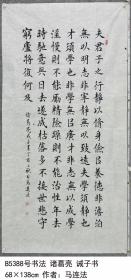 夫君子之行靜以脩身儉以養德非澹泊
無以明志非寧靜無以致遠夫學須靜也
才須學也非學無以廣才非志無以成學
淫慢則不能勵精險躁則不能治性年與
時馳意與歲去遂成枯落多不接世悲守
窮廬將復何及
B5388号书法 诸葛亮 诫子书
68×138cm 作者：马连法